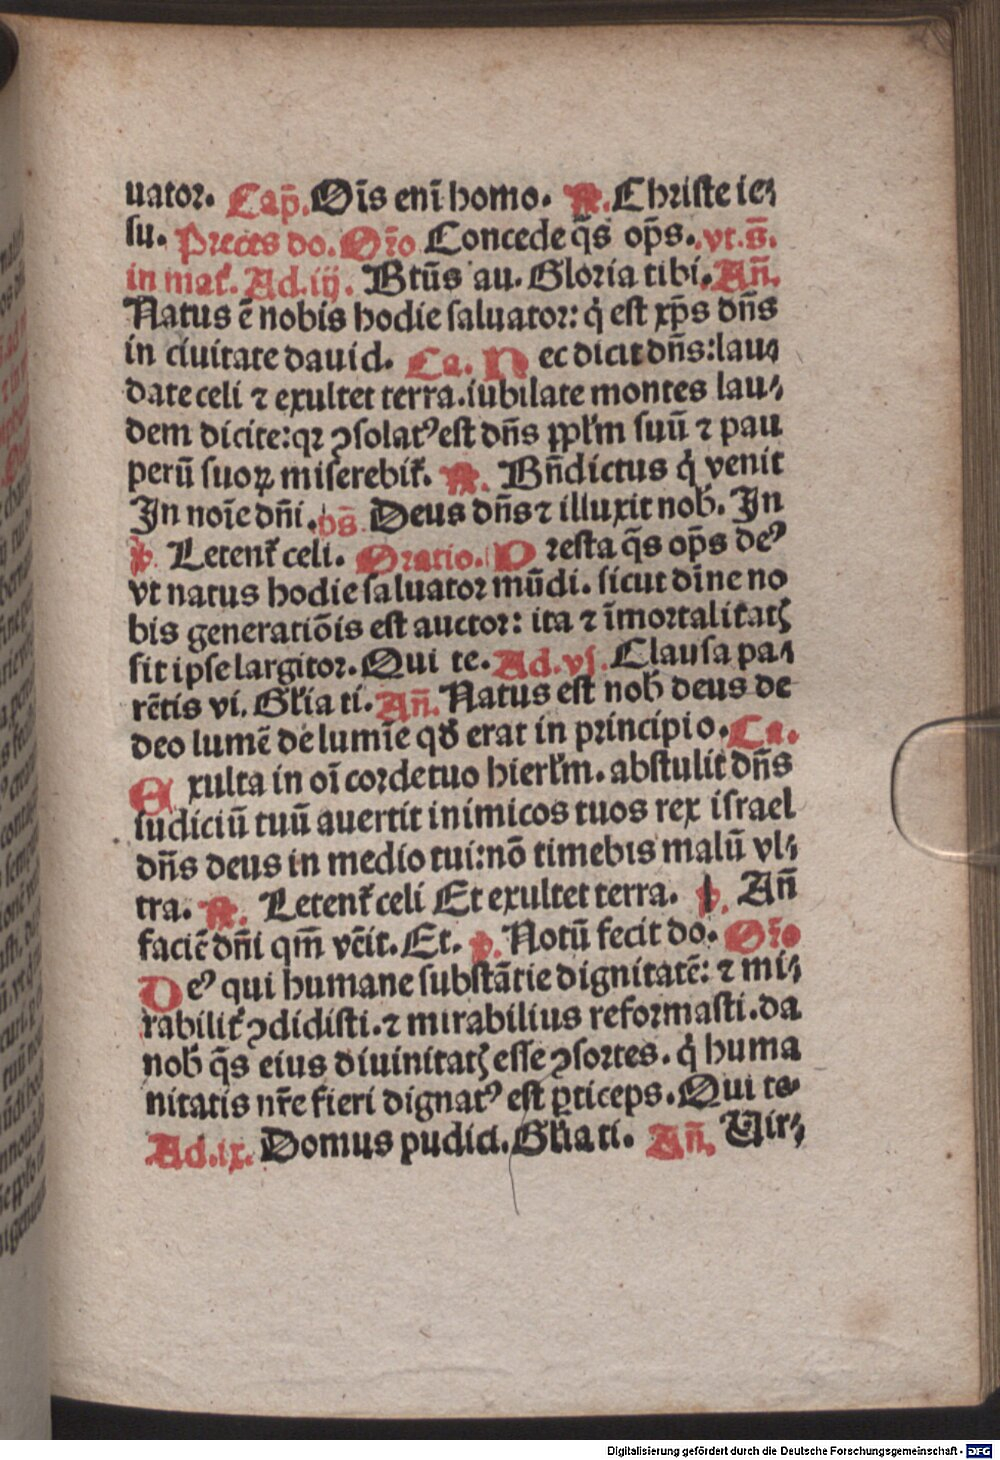 uator. Cap̄. Oīs enī homo. ℟. Christe ie⸗
su. Preces do. Or̄o Concede q̄s op̄s. vt.s̄.
in mat̄. Ad.iij. Btūs au. Gloria tibi. Añ.
Natus ē nobis hodie saluator: q̇ est xp̄s dn̄s
in ciuitate dauid. Ca. Nec dicit dn̄s: lau⸗
date celi ⁊ exultet terra. iubilate montes lau⸗
dem dicite: qꝛ ꝯsolatꝰ est dn̄s ppl̄m suū ⁊ pau
perū suoꝝ miserebit̄. ℟. Bn̄dictus q̇ venit
In noīe dn̄i. v̄s. Deus dn̄s ⁊ illuxit nob̄. In
℣. Letent̄ celi. Oratio. Presta q̄s op̄s deꝰ
vt natus hodie saluator mūdi. sicut dīne no
bis generatiōis est auctor: ita ⁊ īmortalitatꝭ
sit ipse largitor. Qui te. Ad.vj. Clausa pa⸗
rētis vi. Gl̄ia ti. Añ. Natus est nob̄ deus de
deo lumē de lumīe qđ erat in principio. Ca.
Exulta in oī corde tuo hierl̄m. abstulit dn̄s
iudiciū tuū auertit inimicos tuos rex israel
dn̄s deus in medio tui: nō timebis malū vl⸗
tra. ℟. Letent̄ celi Et exultet terra. ℣. Añ
faciē dn̄i qm̄ vēit. Et. ℣. Notū fecit do. Or̄o
Deꝰ qui humane substātie dignitatē: ⁊ mi⸗
rabilit̄ ꝯdidisti. ⁊ mirabilius reformasti. da
nob̄ q̄s eius diuinitatꝭ esse ꝯsortes. q̇ huma
nitatis nr̄e fieri dignatꝰ est ꝑticeps. Qui te.
Ad.ix. Domus pudici. Gl̄ia ti. Añ. Vir⸗
Digitalisierung gefördert durch die Deutsche Forschungsgemeinschaft - DFG